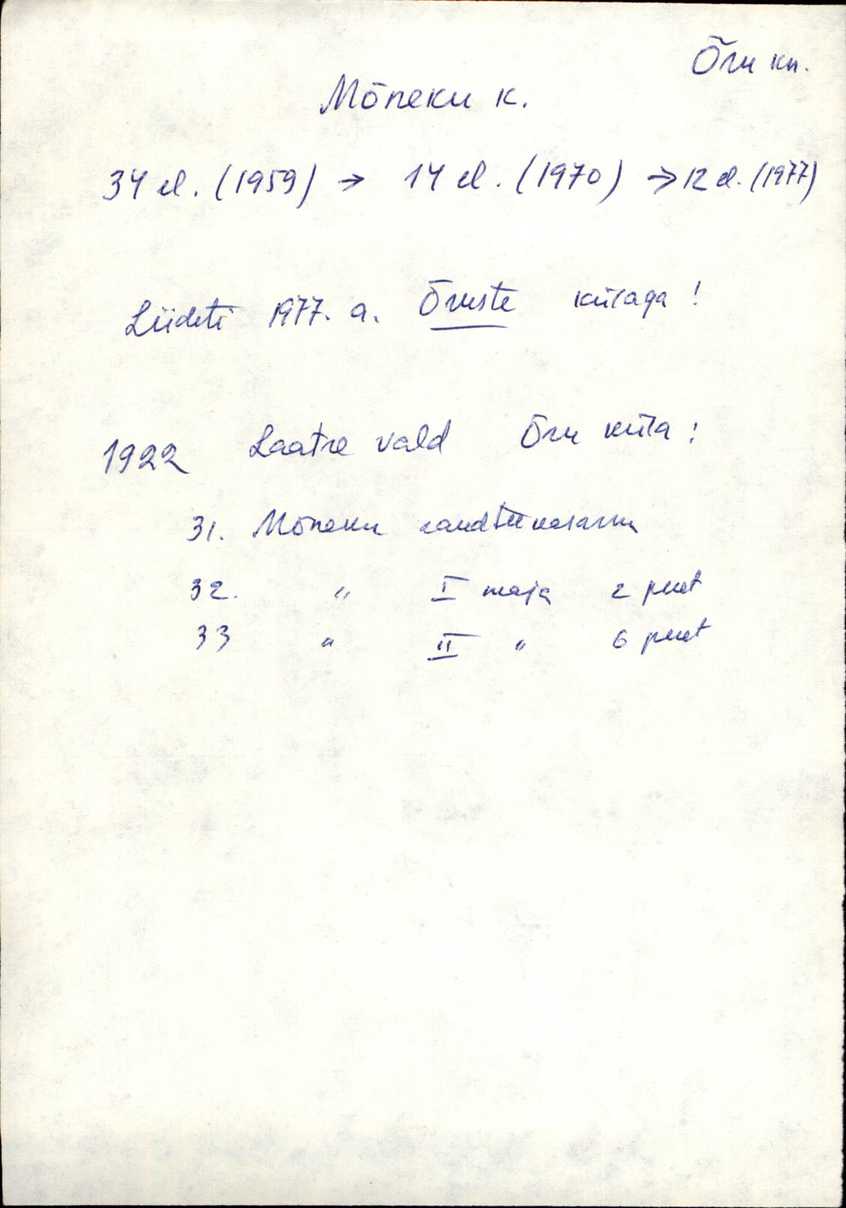 Õru kn.
Mõneku k.
34 el. (1959) → 14 el. (1970) → 12 el. (1977)
Liideti 1977. a. Õruste külaga!
1922 Laatre vald Õru küla:
31. Mõneku raudteekasarm
32. " I maja 2 peret
33 " II " 6 peret